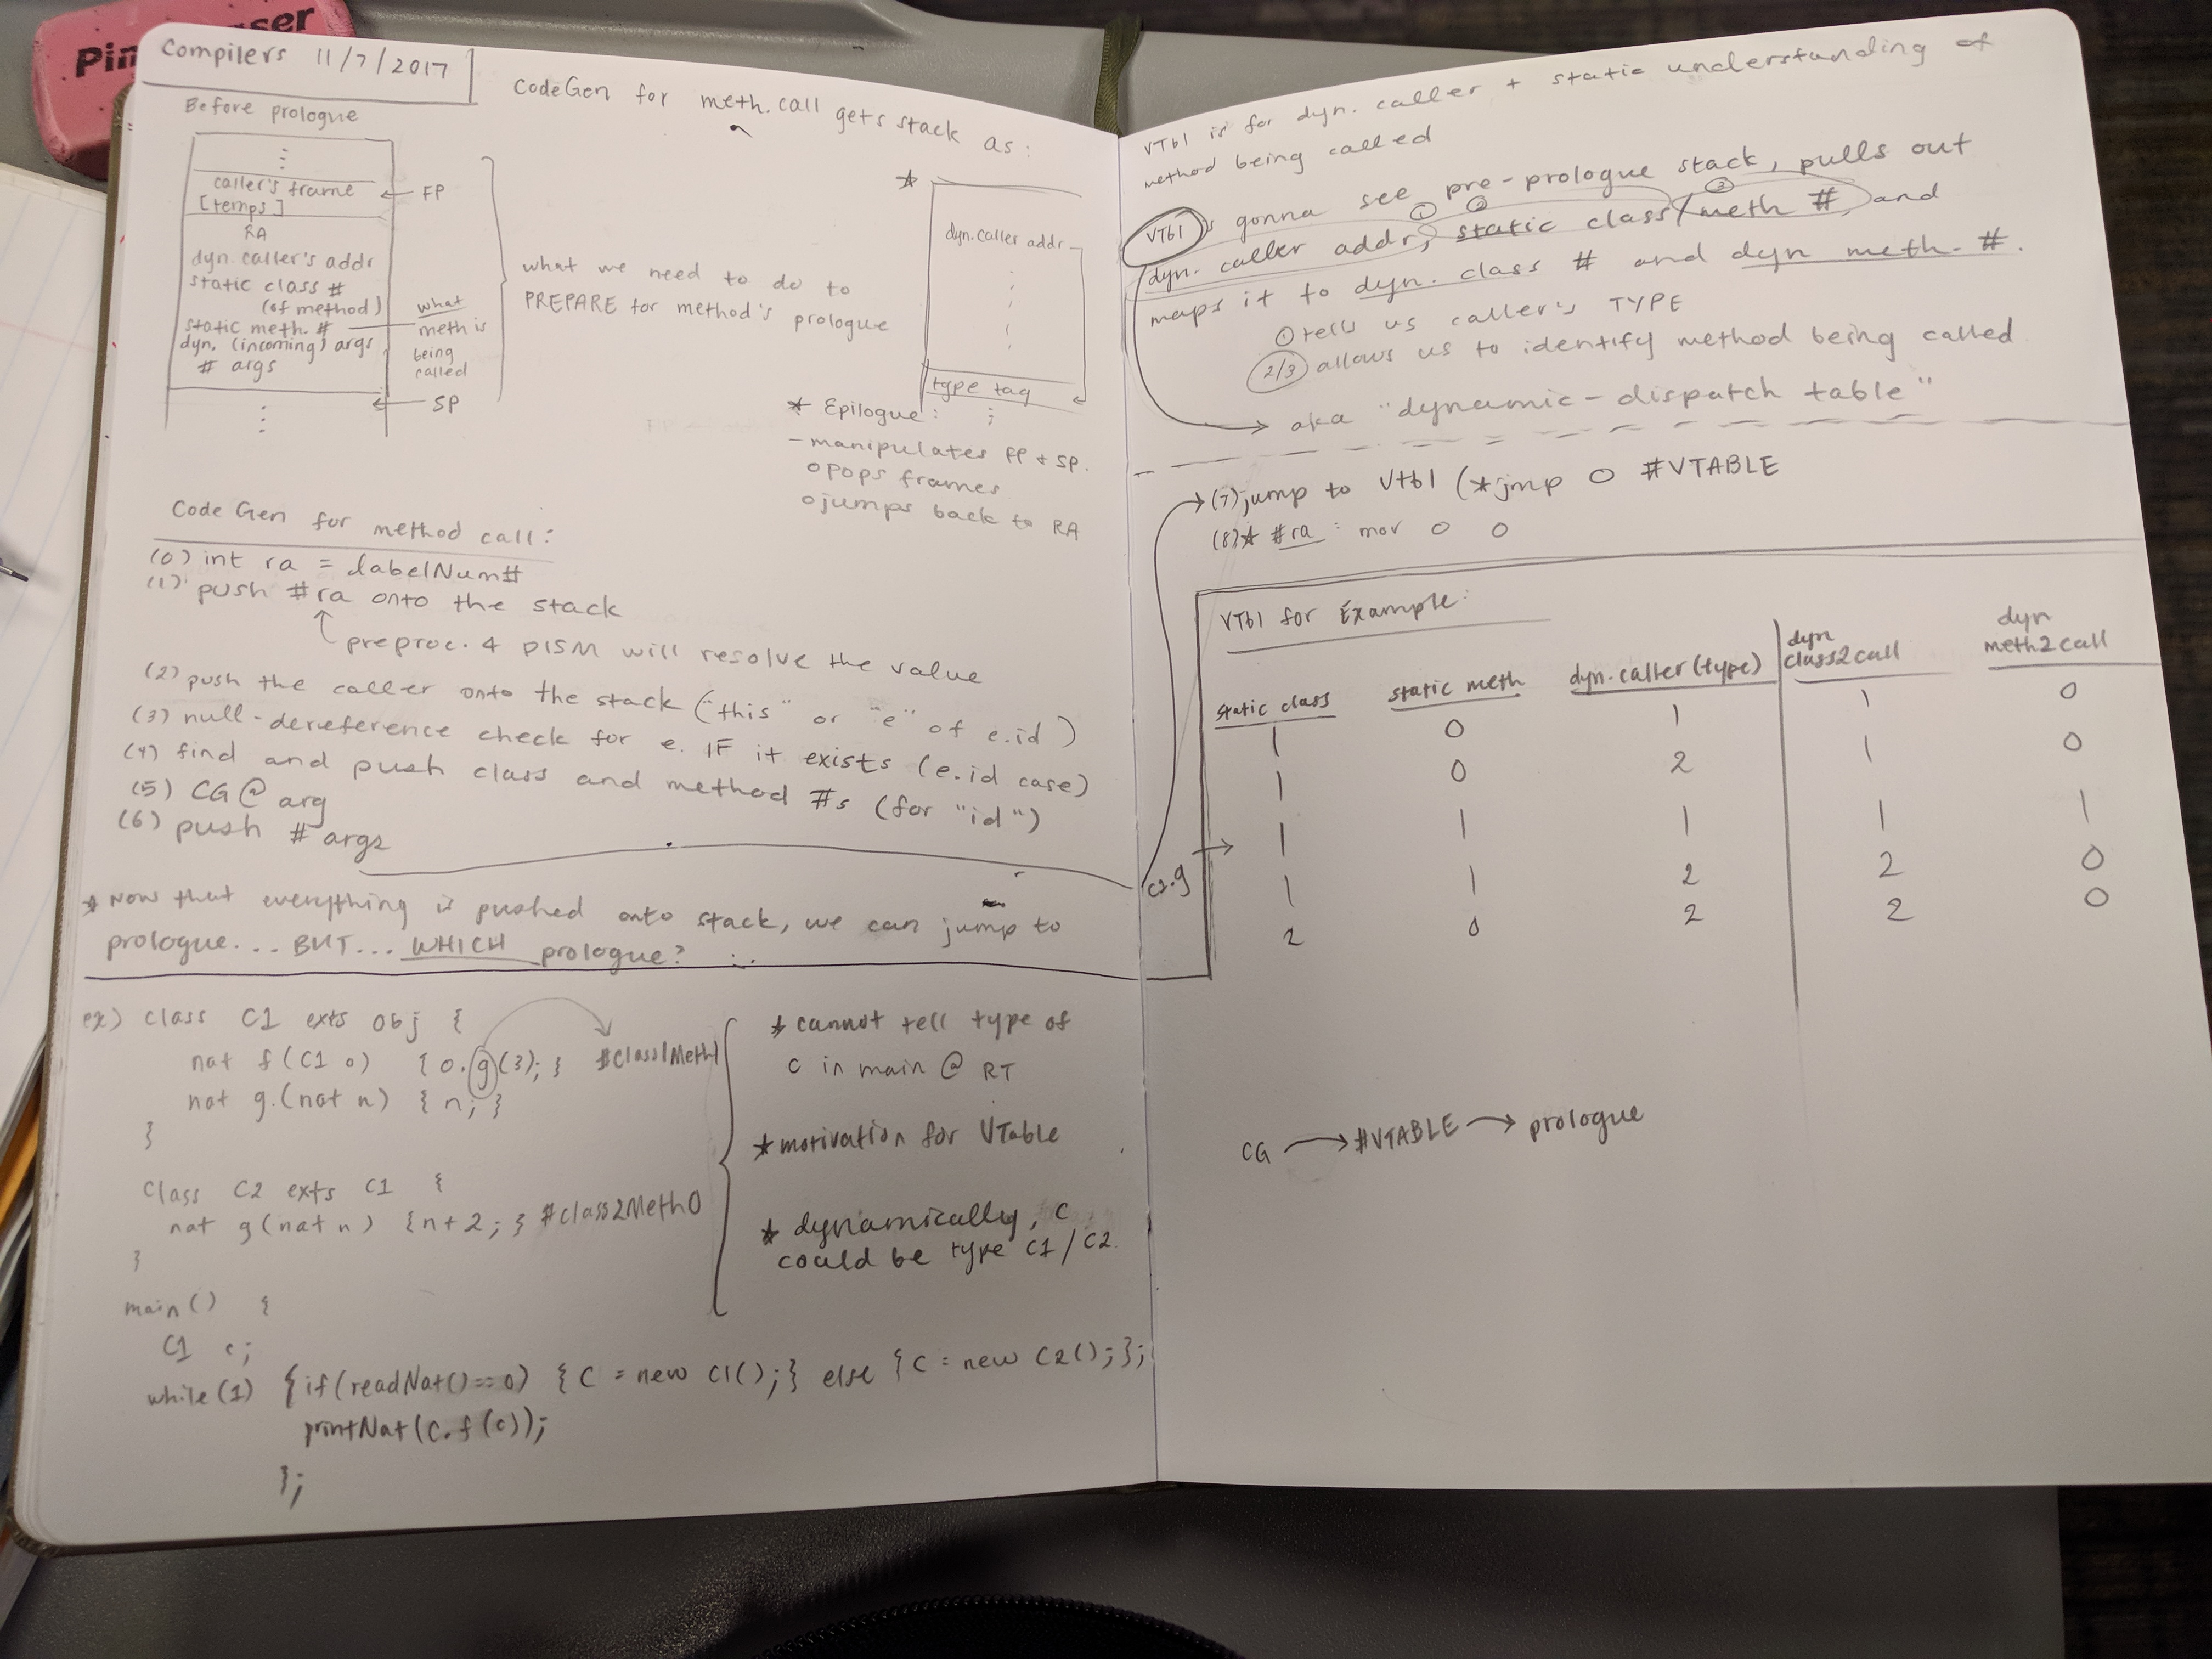 Compilers 11/7/2017
CodeGen for meth.call gets stack as:
Before prologue
caller's frame
[temps]
RA
dyn. caller's addr
static class #
(of method)
static meth. #
dyn. (incoming) args
# args
FP
what
meth is
being
called
SP
what we need to do to
PREPARE for method's prologue
dyn.caller addr
type tag
* Epilogue:
- manipulates FP + SP.
o pops frames
o jumps back to RA
Code Gen for method call:
(0) int ra = labelNum#
(1) push #ra onto the stack
preproc. 4 DISM will resolve the value
(2) push the caller onto the stack ("this" or "e" of e.id)
(3) null-dereference check for e. IF it exists (e.id case)
(4) find and push class and method #s (for "id")
(5) CG@ arg
(6) push # args
* Now that everything is pushed onto stack, we can jump to
prologue... BUT... WHICH prologue?
ex) class C1 exts obj {
nat f(C1 o) {o.g(3);} #Class1Meth1
nat g.(nat n) {n;}
}
Class C2 exts C1 {
nat g(nat n) {n+2;} #class2Meth0
}
main() {
C1 c;
while(1) {if(readNat()==0) {C = new C1();} else {C = new C2();};
printNat(c.f(c));
};
* cannot tell type of
c in main @ RT
* motivation for VTable
* dynamically, c
could be type C1/C2.
VTbl is for dyn. caller + static understanding of
method being called
VTbl's gonna see pre-prologue stack, pulls out
① ② ③
dyn. caller addr, static class/meth #, and
maps it to dyn. class # and dyn meth. #.
① tells us caller's TYPE
2/3 allows us to identify method being called
aka "dynamic-dispatch table"
(7) jump to Vtbl (*jmp 0 #VTABLE
(8)* #ra : mov 0 0
VTbl for Example:
static class static meth dyn. caller (type) dyn class2call dyn meth2call
1 0 1 1 0
1 0 2 1 0
1 1 1 1 1
C1.g
1 1 2 2 0
2 0 2 2 0
CG → #VTABLE → prologue
Pin ser